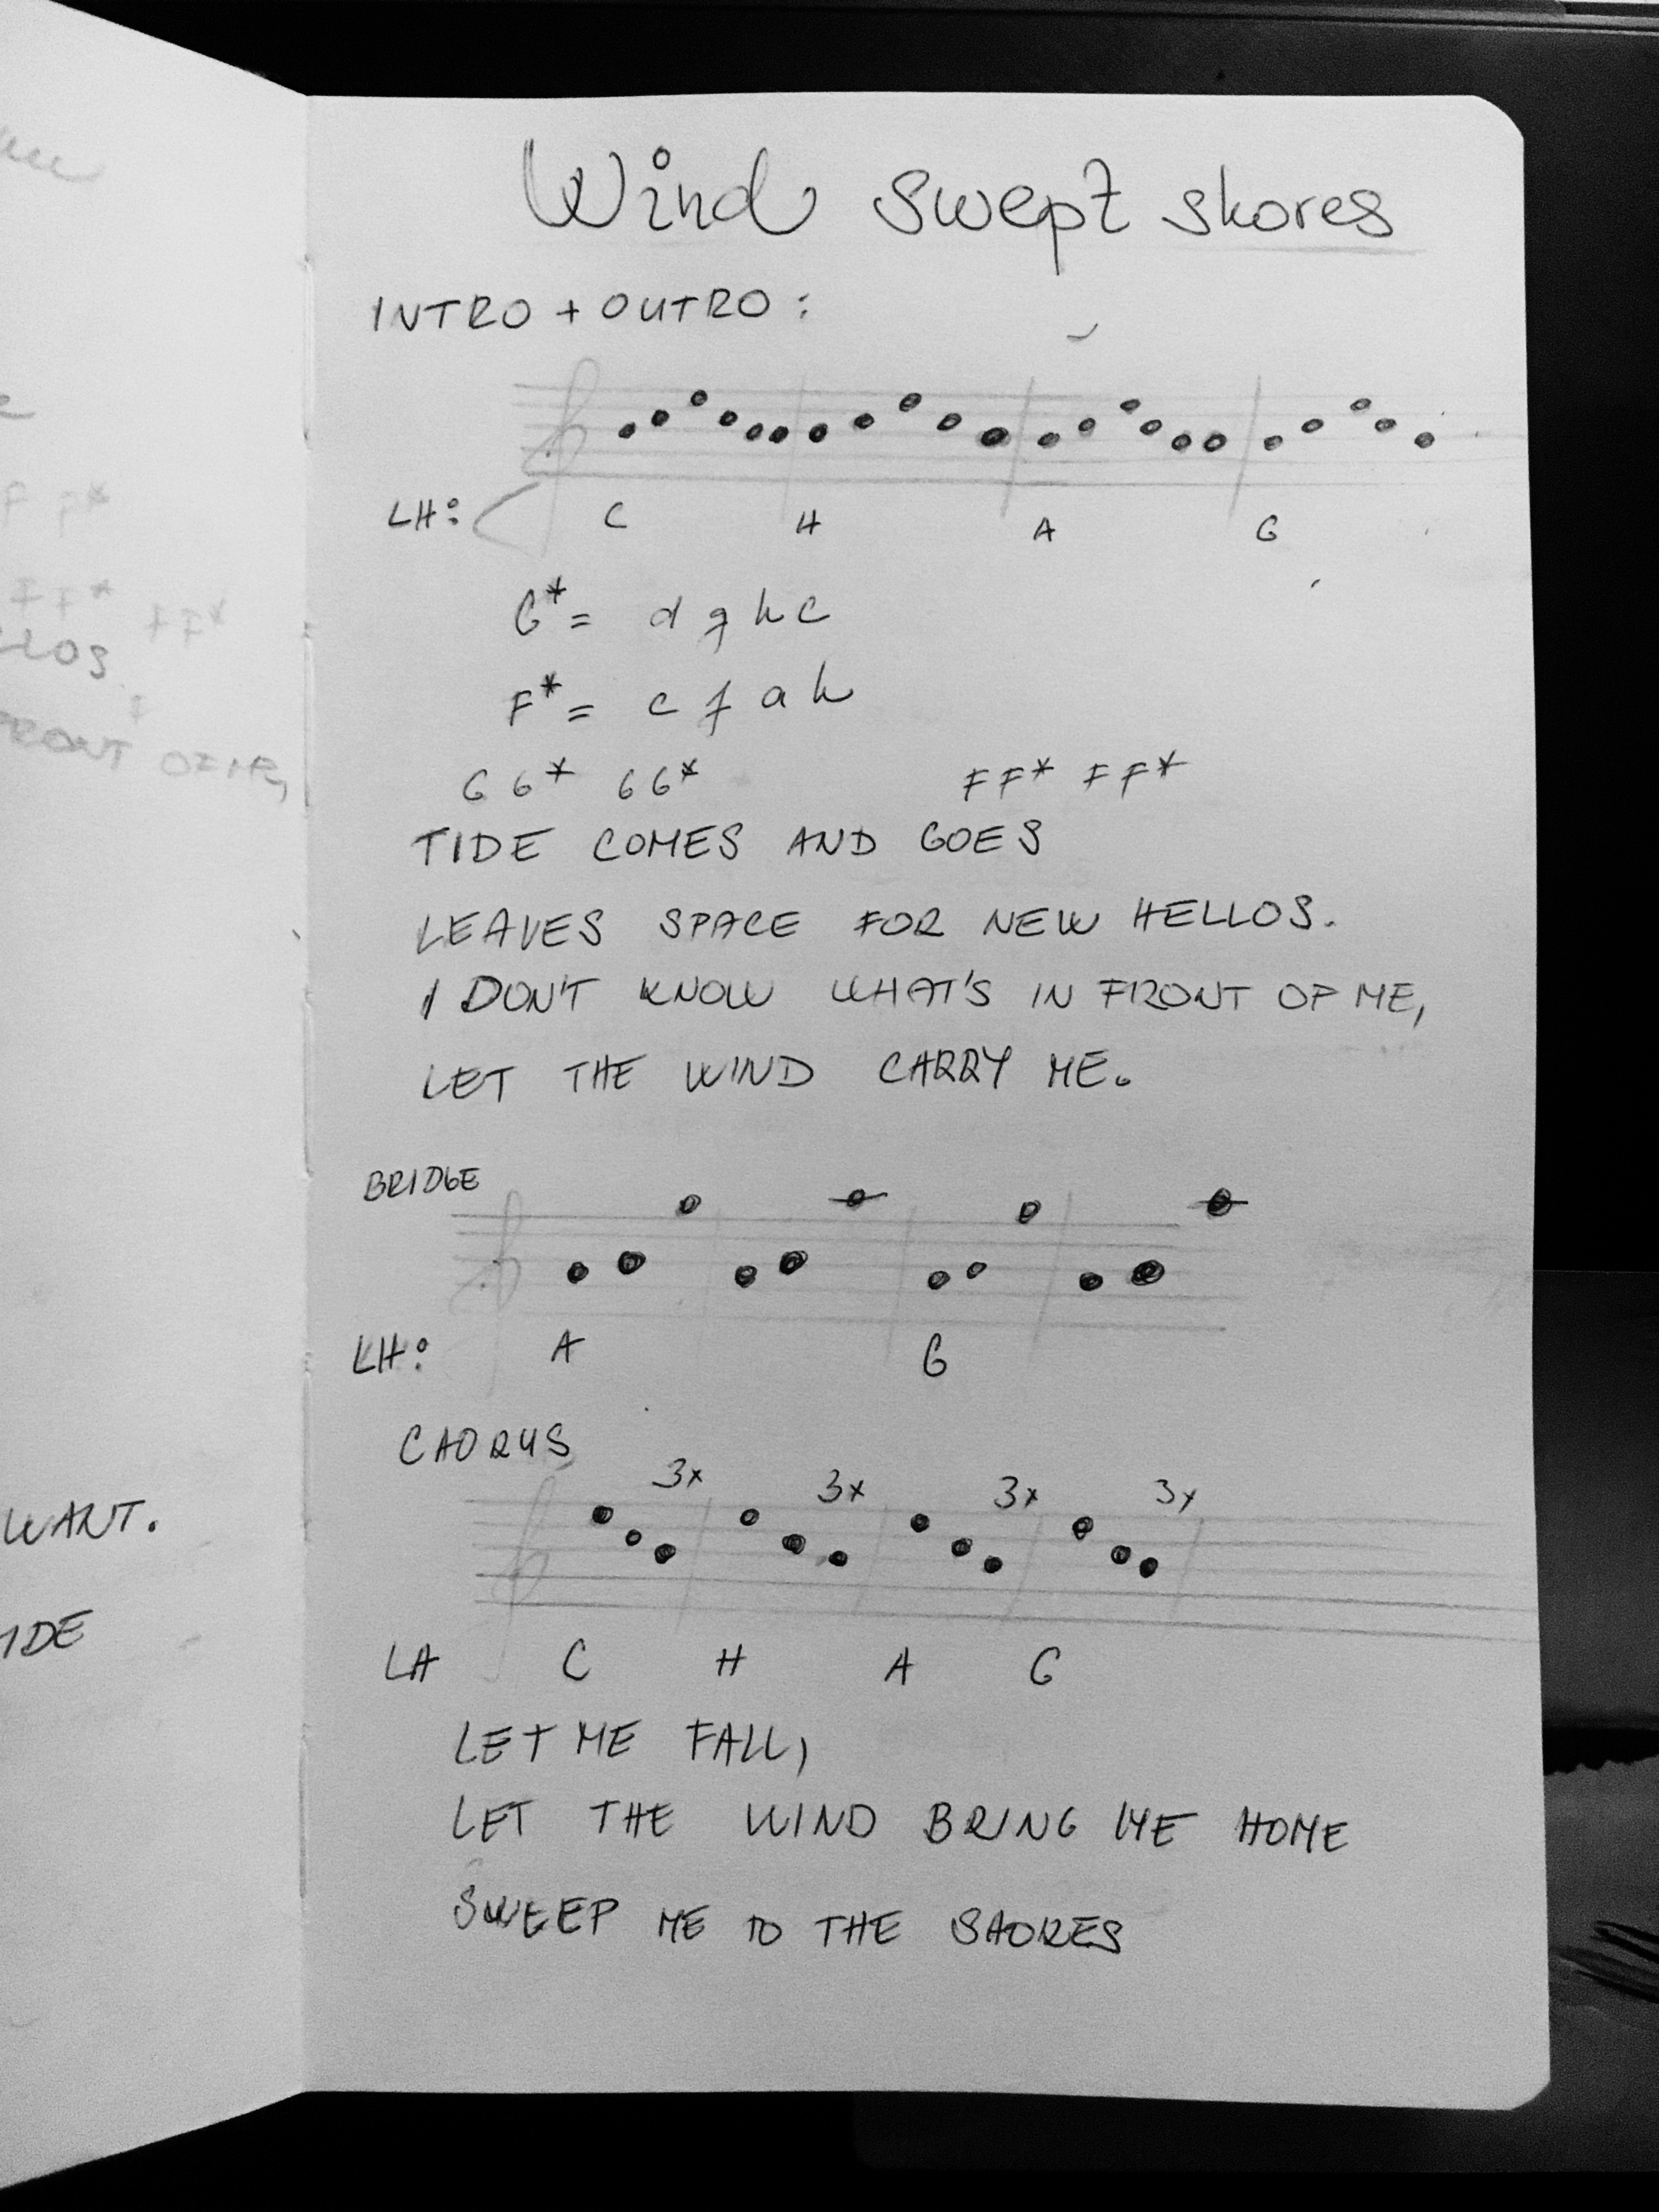 Wind swept shores
INTRO + OUTRO:
LH: C H A G
G* = d g h c
F* = c f a h
G G* G G* F F* F F*
TIDE COMES AND GOES
LEAVES SPACE FOR NEW HELLOS.
I DON'T KNOW WHAT'S IN FRONT OF ME,
LET THE WIND CARRY ME.
BRIDGE
LH: A G
CHORUS
3x 3x 3x 3x
LH C H A G
LET ME FALL,
LET THE WIND BRING ME HOME
SWEEP ME TO THE SHORES
F F*
FF* FF*
LLOS
F
FRONT OF ME,
WANT.
IDE